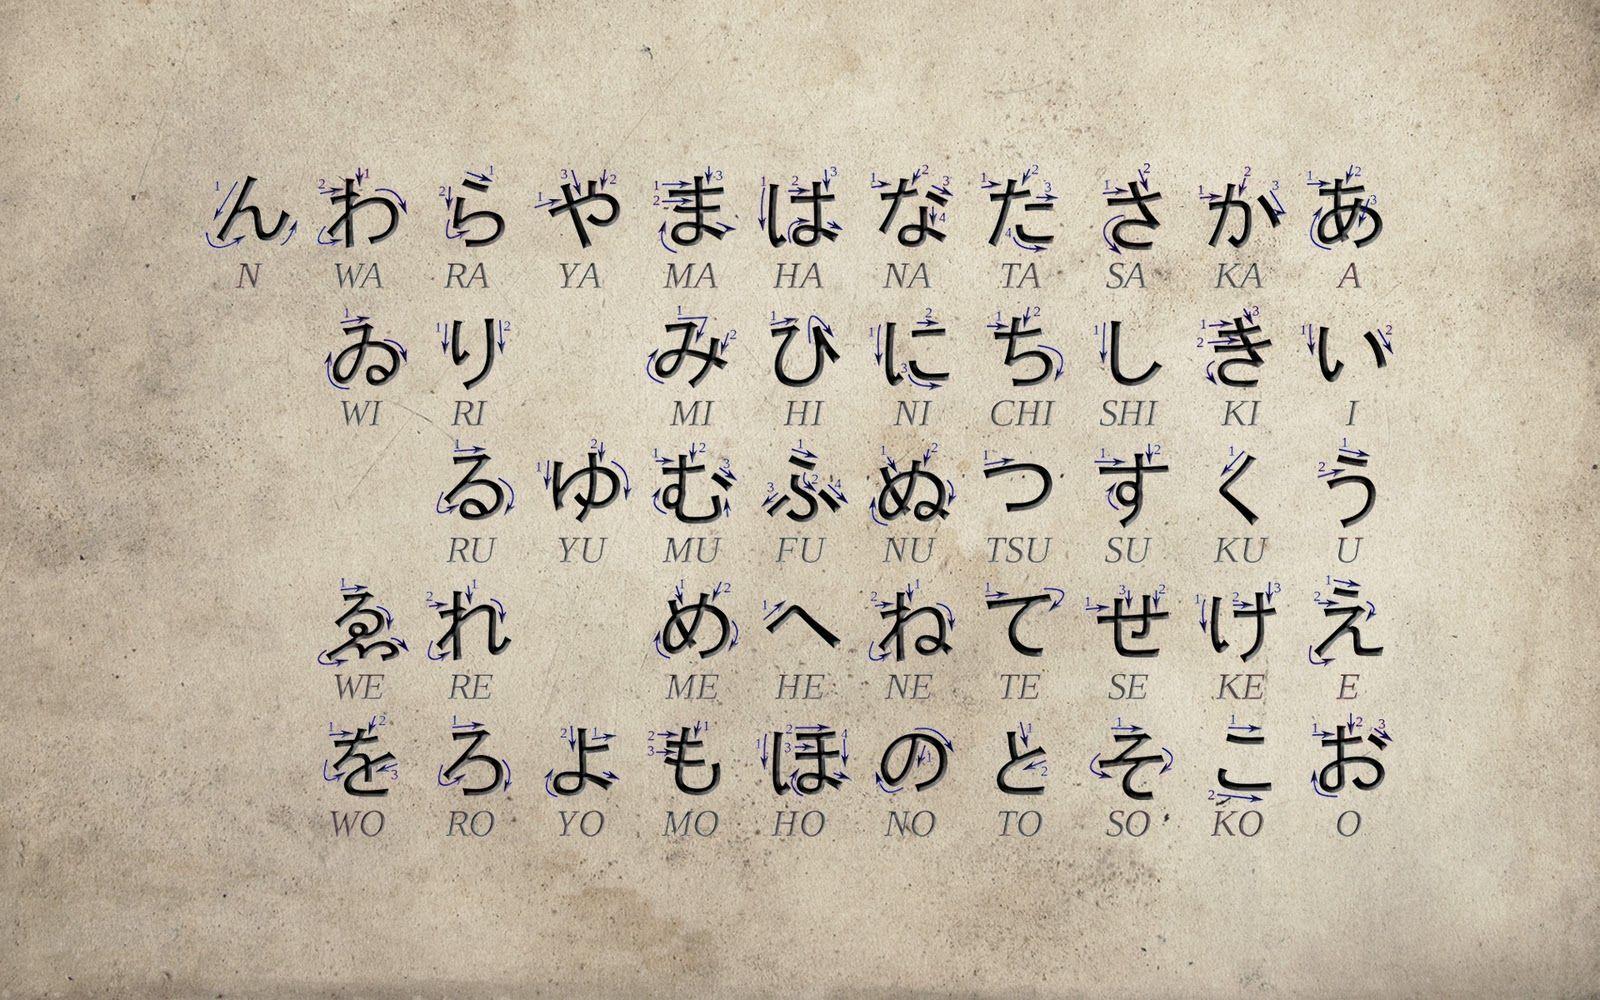 ん わ ら や ま は な た さ か あ
N WA RA YA MA HA NA TA SA KA A
ゐ り み ひ に ち し き い
WI RI MI HI NI CHI SHI KI I
る ゆ む ふ ぬ つ す く う
RU YU MU FU NU TSU SU KU U
ゑ れ め へ ね て せ け え
WE RE ME HE NE TE SE KE E
を ろ よ も ほ の と そ こ お
WO RO YO MO HO NO TO SO KO O